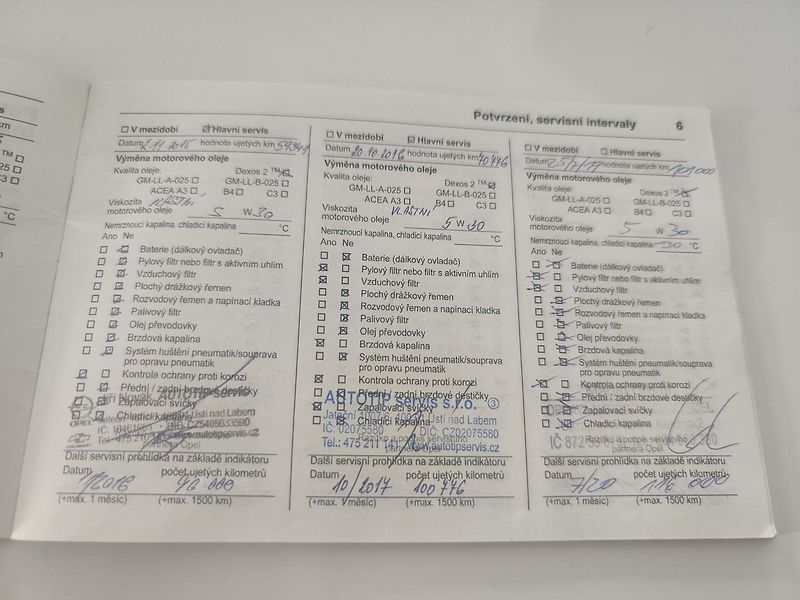 Potvrzení, servisní intervaly 6
☐ V mezidobí ☑ Hlavní servis
Datum 2.11 2015 hodnota ujetých km
Výměna motorového oleje
Kvalita oleje: Dexos 2 ™ ☒
GM-LL-A-025 ☐ GM-LL-B-025 ☐
ACEA A3 ☐ B4 ☐ C3 ☐
Viskozita VLASTNÍ
motorového oleje 5 W 30
Nemrznoucí kapalina, chladicí kapalina °C
Ano Ne
☐ ☑ Baterie (dálkový ovladač)
☐ ☑ Pylový filtr nebo filtr s aktivním uhlím
☐ ☑ Vzduchový filtr
☐ ☑ Plochý drážkový řemen
☐ ☑ Rozvodový řemen a napínací kladka
☐ ☑ Palivový filtr
☐ ☑ Olej převodovky
☐ ☑ Brzdová kapalina
☐ ☑ Systém huštění pneumatik/souprava
pro opravu pneumatik
☑ ☐ Kontrola ochrany proti korozi
☐ ☑ Přední / zadní brzdové destičky
☐ ☑ Zapalovací svíčky
☐ ☑ Chladicí kapalina
AUTOTIP servis
Ústí nad Labem
OPEL
www.autotipservis.cz
Další servisní prohlídka na základě indikátoru
Datum počet ujetých kilometrů
(+max. 1 měsíc) (+max. 1500 km)
☐ V mezidobí ☒ Hlavní servis
Datum 20.10 2016 hodnota ujetých km 70776
Výměna motorového oleje
Kvalita oleje: Dexos 2 ™ ☑
GM-LL-A-025 ☐ GM-LL-B-025 ☐
ACEA A3 ☐ B4 ☐ C3 ☐
Viskozita VLASTNÍ
motorového oleje 5 W 30
Nemrznoucí kapalina, chladicí kapalina °C
Ano Ne
☐ ☒ Baterie (dálkový ovladač)
☒ ☐ Pylový filtr nebo filtr s aktivním uhlím
☒ ☐ Vzduchový filtr
☐ ☒ Plochý drážkový řemen
☐ ☒ Rozvodový řemen a napínací kladka
☐ ☒ Palivový filtr
☐ ☒ Olej převodovky
☒ ☐ Brzdová kapalina
☐ ☒ Systém huštění pneumatik/souprava
pro opravu pneumatik
☒ ☐ Kontrola ochrany proti korozi
Přední / zadní brzdové destičky
AUTOTIP servis s.r.o. 3
Zapalovací svíčky
Chladicí kapalina
Ústí nad Labem
IČ: 02075580 DIČ: CZ02075580
Tel.: 475 211 www.autotipservis.cz
Další servisní prohlídka na základě indikátoru
Datum 10/2017 počet ujetých kilometrů 100 776
(+max. 1 měsíc) (+max. 1500 km)
☐ V mezidobí ☐ Hlavní servis
Datum 25/7/19 hodnota ujetých km 101000
Výměna motorového oleje
Kvalita oleje: Dexos 2 ™ ☒
GM-LL-A-025 ☐ GM-LL-B-025 ☐
ACEA A3 ☐ B4 ☐ C3 ☐
Viskozita
motorového oleje 5 W 30
Nemrznoucí kapalina, chladicí kapalina -30 °C
Ano Ne
☐ ☒ Baterie (dálkový ovladač)
☒ ☐ Pylový filtr nebo filtr s aktivním uhlím
☒ ☐ Vzduchový filtr
☐ ☒ Plochý drážkový řemen
☐ ☒ Rozvodový řemen a napínací kladka
☐ ☒ Palivový filtr
☐ ☒ Olej převodovky
☐ ☒ Brzdová kapalina
☐ ☒ Systém huštění pneumatik/souprava
pro opravu pneumatik
☒ ☐ Kontrola ochrany proti korozi
☐ ☒ Přední / zadní brzdové destičky
☐ ☒ Zapalovací svíčky
☐ ☒ Chladicí kapalina
Razítko a podpis servisního
partnera Opel
Další servisní prohlídka na základě indikátoru
Datum 7/20 počet ujetých kilometrů 116 000
(+max. 1 měsíc) (+max. 1500 km)